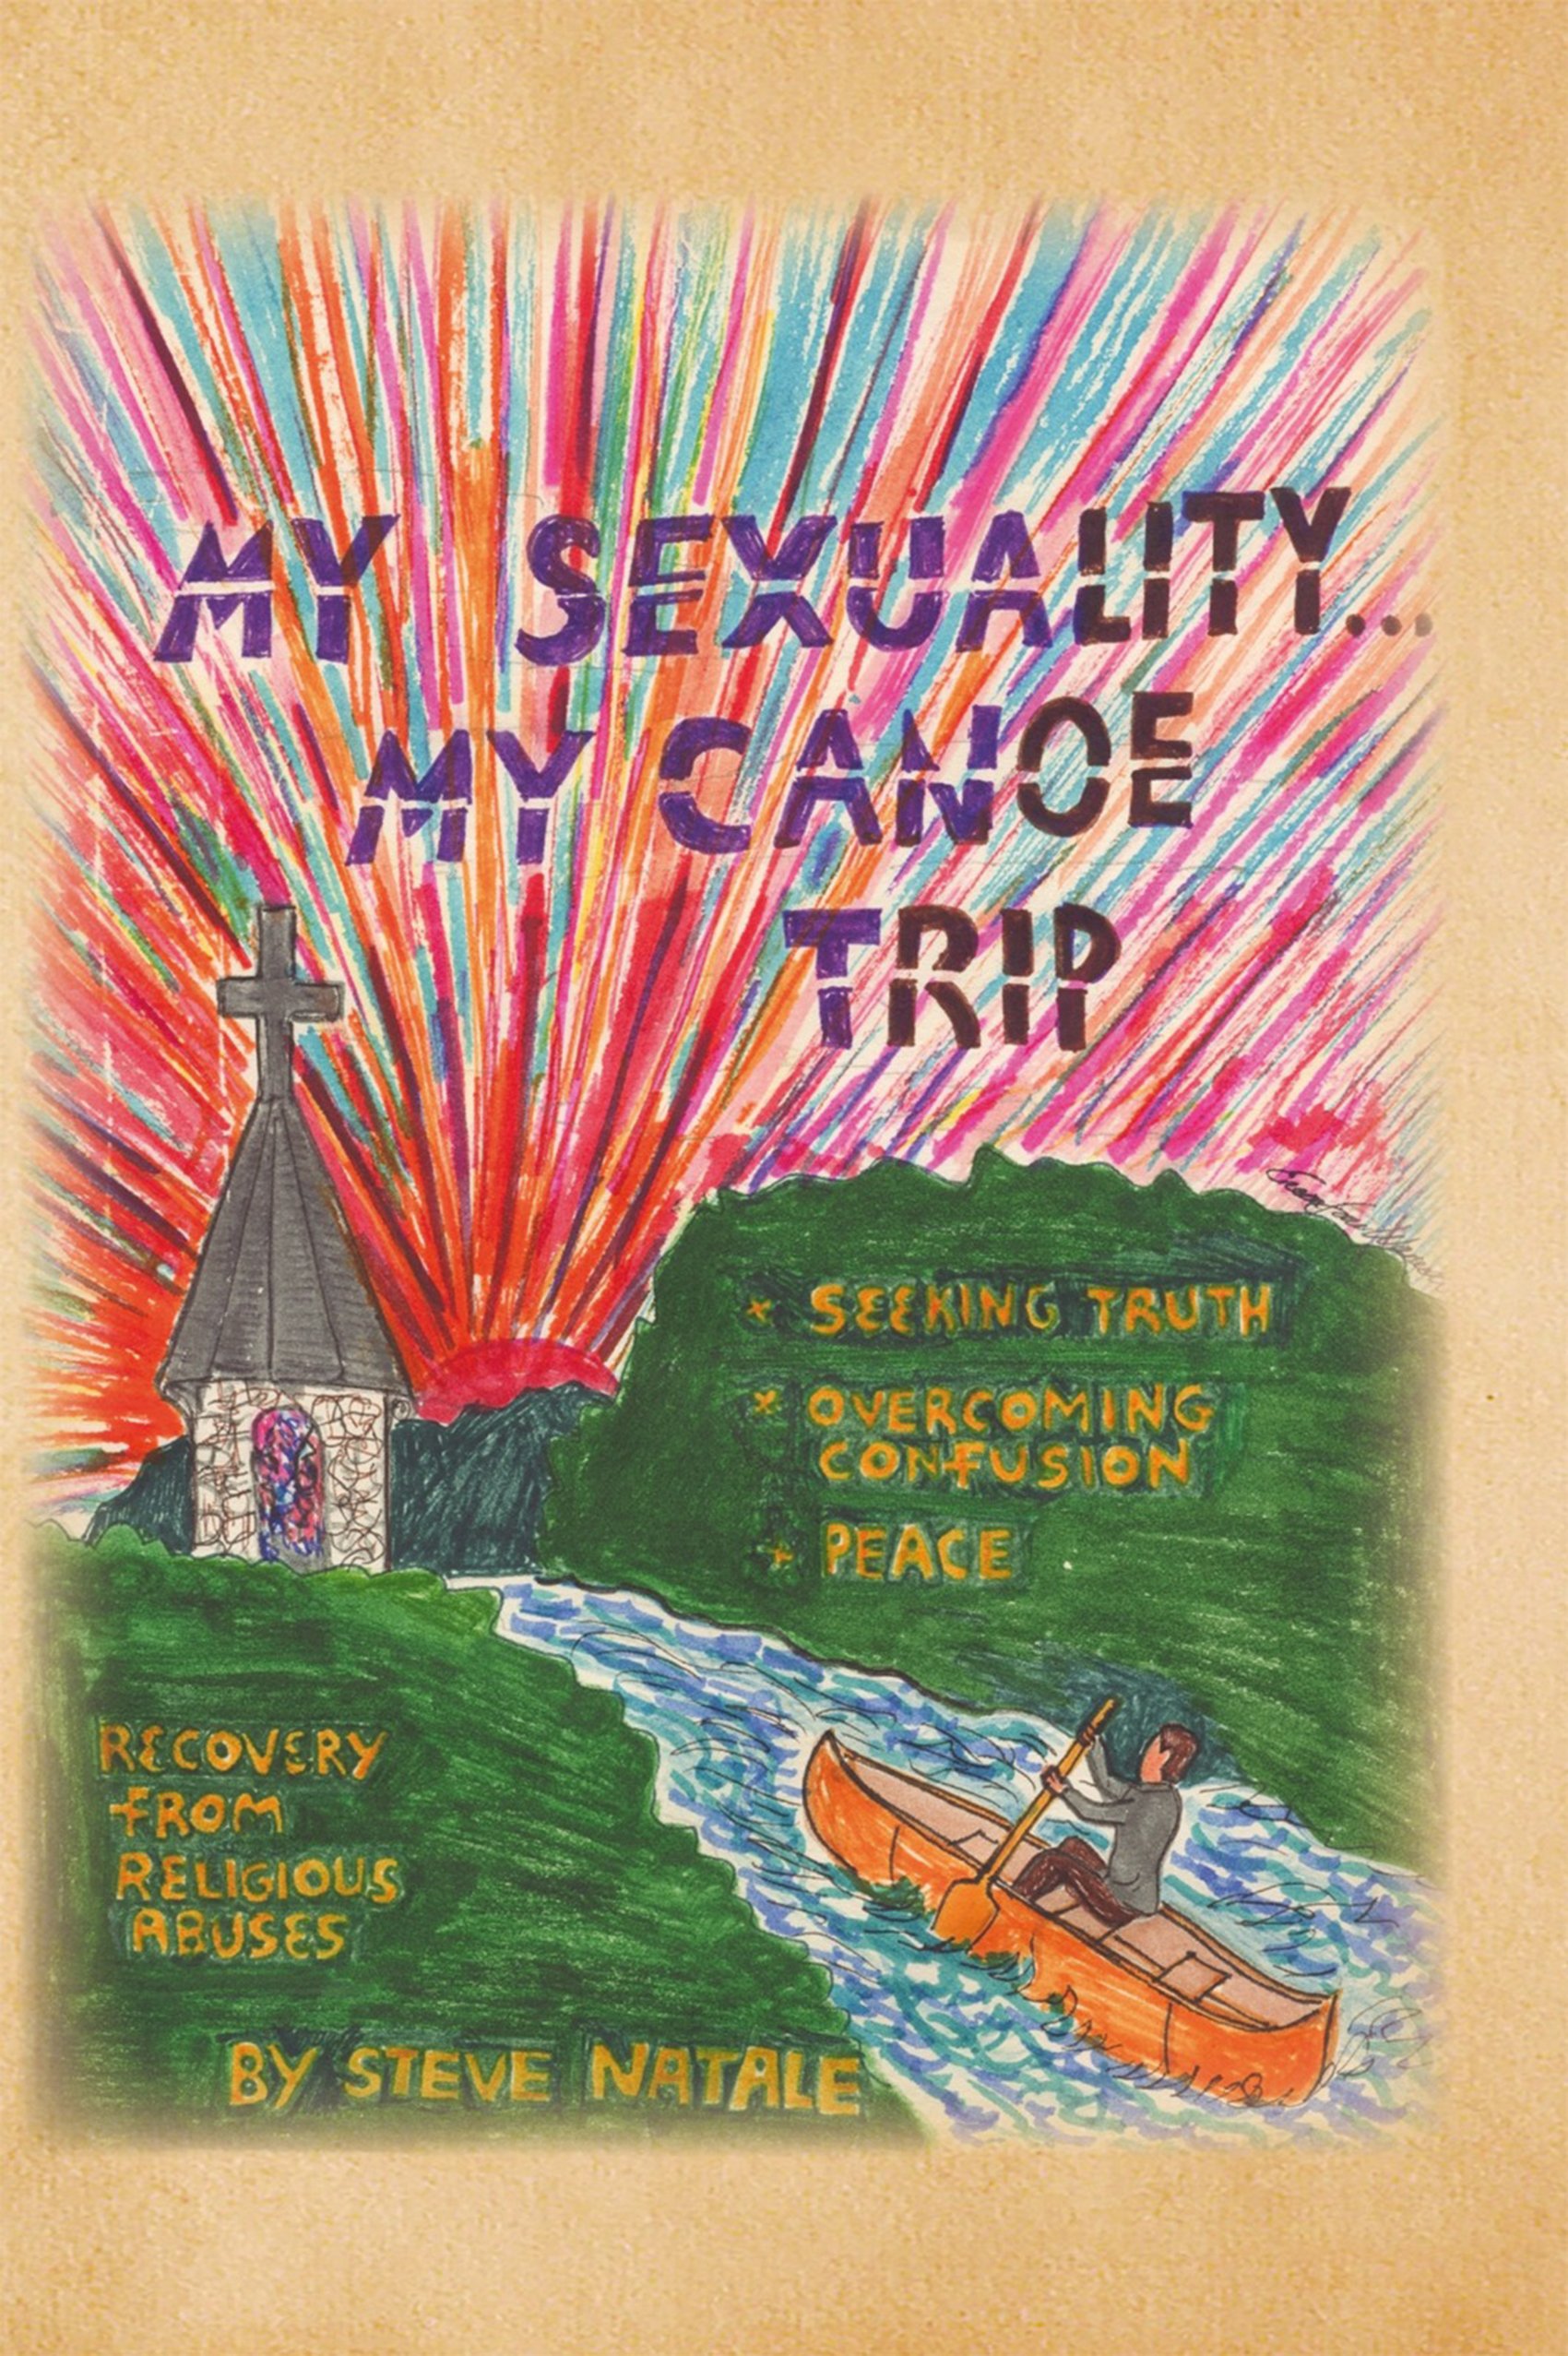 MY SEXUALITY...
MY CANOE
TRIP
x SEEKING TRUTH
x OVERCOMING
CONFUSION
+ PEACE
RECOVERY
FROM
RELIGIOUS
ABUSES
BY STEVE NATALE